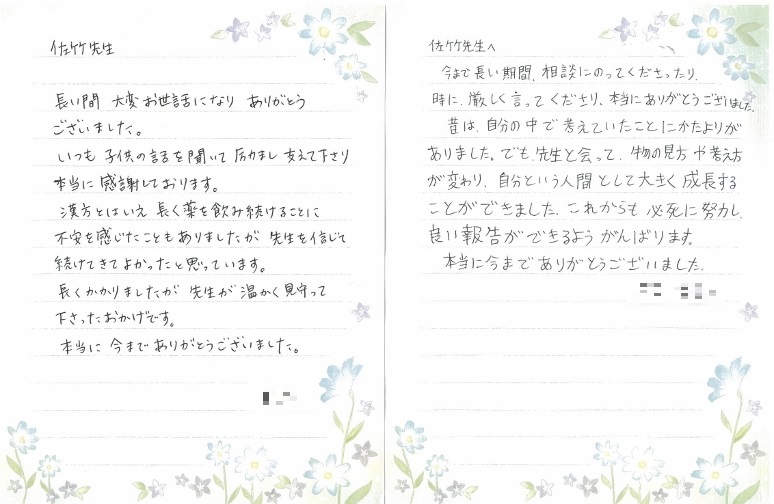 佐竹先生
長い間 大変お世話になり ありがとう
ございました。
いつも 子供の話を聞いて 励まし 支えて下さり
本当に 感謝しております。
漢方とはいえ 長く薬を飲み続けることに
不安を感じたこともありましたが 先生を信じて
続けてきてよかったと思っています。
長くかかりましたが 先生が 温かく見守って
下さったおかげです。
本当に 今まで ありがとうございました。
佐竹先生へ
今まで長い期間、相談にのってくださったり、
時に、厳しく言ってくださり、本当にありがとうございました。
昔は、自分の中で考えていたことにかたよりが
ありました。でも、先生と会って、物の見方や考え方
が変わり、自分という人間として大きく成長する
ことができました。これからも必死に努力し、
良い報告ができるようがんばります。
本当に今までありがとうございました。